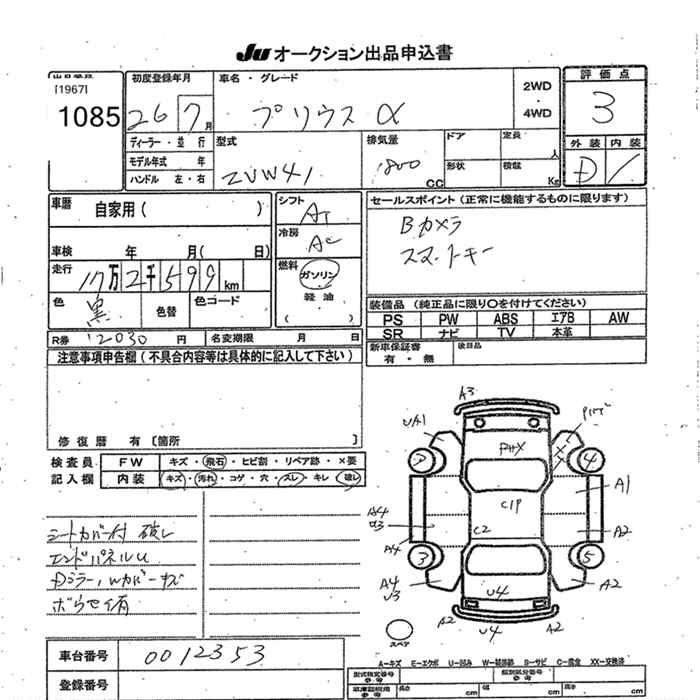 JU オークション出品申込書
[1967]
1085
初度登録年月
26 7月
車名・グレード
プリウス α
2WD
・
4WD
評価点
3
外装 内装
D
ディーラー・並行
モデル年式 年
ハンドル 左・右
型式
ZVW41
排気量
1800 CC
ドア
定員
人
形状
積載
Kg
車歴
自家用( )
車検 年 月( 日)
走行
17万2千599km
色
黒
色替
色コード
シフト
AT
冷房
AC
燃料
ガソリン
軽油
( )
セールスポイント(正常に機能するものに限ります)
Bカメラ
スマートキー
装備品(純正品に限り○を付けてください)
PS PW ABS エアB AW
SR ナビ TV 本革
新車保証書
有・無
後日品
R券 12030 円 名変期限 月 日
注意事項申告欄(不具合内容等は具体的に記入して下さい)
修復歴 有〔箇所 〕
検査員
記入欄
FW キズ・飛石・ヒビ割・リペア跡・×要
内装 キズ・汚れ・コゲ・穴・スレ・キレ・破レ
シートカバー付 破レ
エンドパネルU
Dミラー,Wカバーキズ
ボウセイ有
A3
UA1
PHX
4
C1P
A1
A4
U3
C2
A2
A4
3
5
A4
U3
U4
A2
A2
U4
A2
スペア
車台番号 0012353
登録番号
A−キズ E−エクボ U−凹み W−補修跡 S−サビ C−腐食 XX−交換済
型式指定番号
参考
類別区分番号
参考
車庫証明用
参考
長さ cm 幅 cm 高さ cm